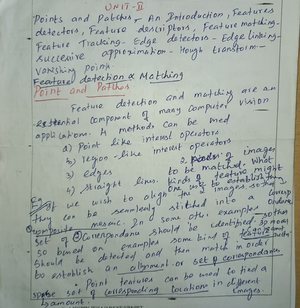 UNIT-II
Points and Patches - An Introduction, Features
detectors, Feature descriptors, Feature matching-
Feature Tracking- Edge detectors - Edge linking-
successive approximation - Hough transform-
Vanishing point-
Feature detection & Matching
Point and Patches
Feature detection and matching are an
essential component of many computer vision
application. 4 methods can be used
a) Point like interest operators
2) region-like interest operators
3) edges
4) straight lines.
2 pairs of images
to be matched. What
kinds of feature might
one want to establish
Eg If we wish to align images so
they can be seamlessly stitched into a
composite mosaic. In some other examples
set of correspondence should be identified
so based on examples some kind of feature
should be detected and then matched in order
to establish an alignment or set of correspondence
Point features can be used to find a
set of corresponding locations in different
images.